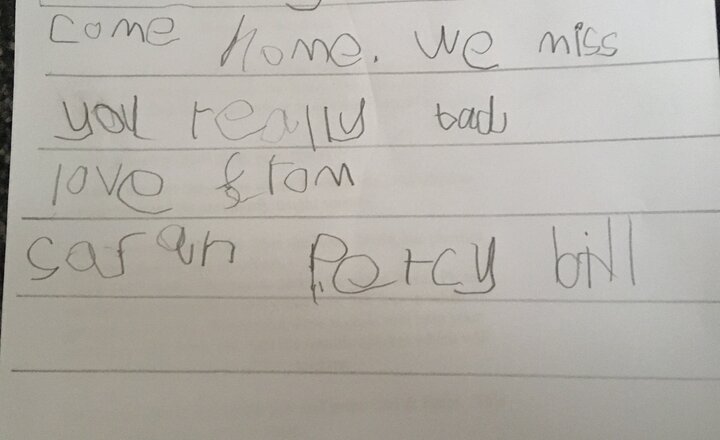 come home. we miss
you really bad
love from
sarah Percy bill